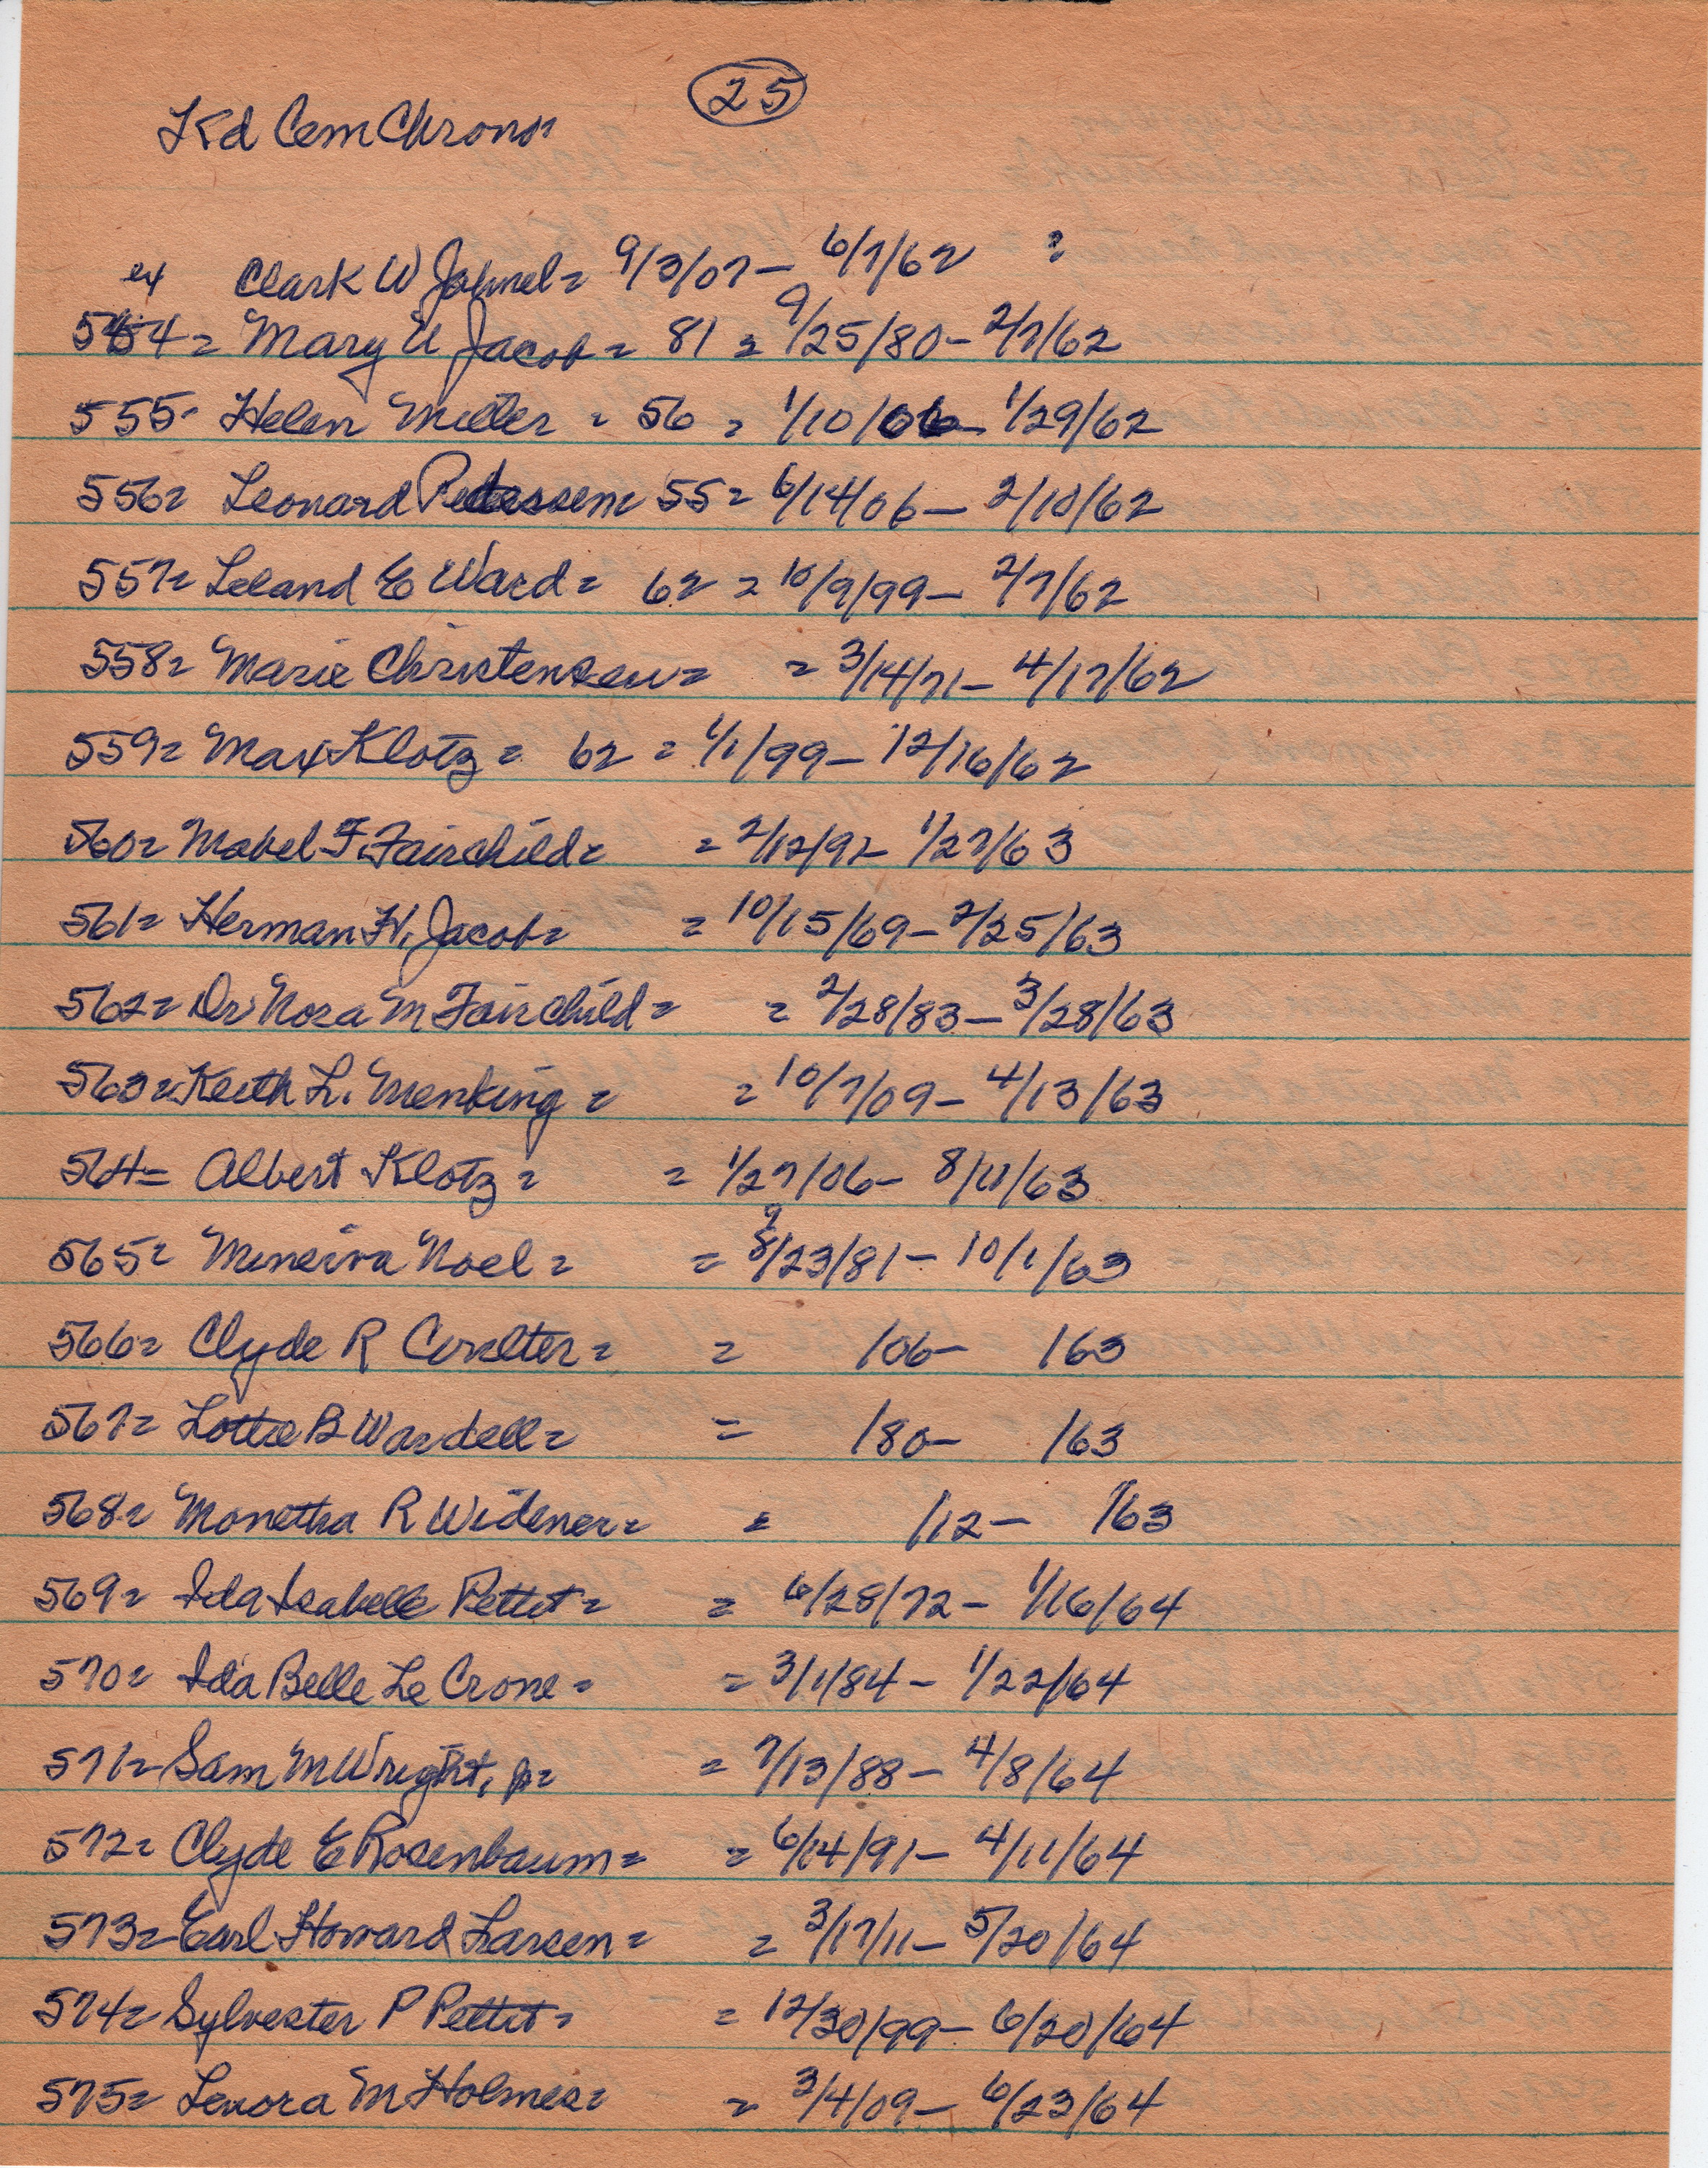 25
Kd Cem Chrono=
ex Clark W Jahnel= 9/3/07- 6/7/62 ?
554= Mary U Jacob= 81 = 9/25/80- 2/7/62
555- Helen Miller = 56 = 1/10/06- 1/29/62
556= Leonard Petersen= 55= 6/14/06- 2/10/62
557= Leland E Ward= 62 = 10/9/99- 2/7/62
558= Marie Christensen= = 3/14/71- 4/17/62
559= Max Klotz= 62 = 1/1/99- 12/16/62
560= Mabel F. Fairchild= = 2/12/92- 1/27/63
561= Herman H. Jacob= = 10/15/69- 2/25/63
562= Dr Nora M Fairchild= = 2/28/83- 3/28/63
563= Keith L. Menking= = 10/7/09- 4/13/63
564= Albert Klotz= = 1/27/06- 8/11/63
565= Minerva Noel= = 8/23/81- 10/1/63
566= Clyde R Coulter= = /06- /63
567= Lottie B Wardell= = /80- /63
568= Monetha R Widener= = /12- /63
569= Ida Isabelle Pettit= = 6/28/72- 1/16/64
570= Ida Belle Le Crone= = 3/1/84- 1/22/64
571= Sam M Wright, Jr= = 7/13/88- 4/8/64
572= Clyde E Rosenbaum= = 6/14/91- 4/11/64
573= Earl Howard Larsen= = 3/17/11- 5/20/64
574= Sylvester P Pettit= = 12/30/99- 6/20/64
575= Lenora M Holmes= = 3/4/09- 6/23/64